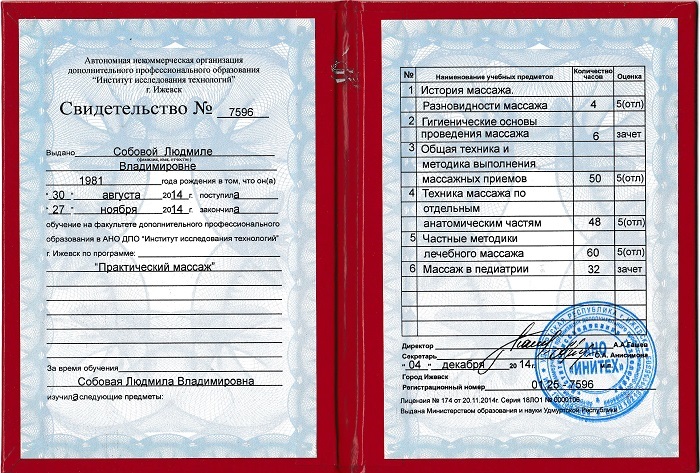 Автономная некоммерческая организация
дополнительного профессионального образования
"Институт исследования технологий"
г. Ижевск
Свидетельство № 7596
Выдано Собовой Людмиле
(фамилия, имя, отчество)
Владимировне
1981 года рождения в том, что он(а)
"30" августа 2014 г. поступила
"27" ноября 2014 г. закончила
обучение на факультете дополнительного профессионального
образования в АНО ДПО "Институт исследования технологий"
г. Ижевск по программе:
"Практический массаж"
За время обучения
Собовая Людмила Владимировна
изучила следующие предметы:
№ Наименование учебных предметов Количество часов Оценка
1 История массажа.
Разновидности массажа 4 5(отл)
2 Гигиенические основы
проведения массажа 6 зачет
3 Общая техника и
методика выполнения
массажных приемов 50 5(отл)
4 Техника массажа по
отдельным
анатомическим частям 48 5(отл)
5 Частные методики
лечебного массажа 60 5(отл)
6 Массаж в педиатрии 32 зачет
Директор А.А.Башев
Секретарь О.А. Анисимова
"04" декабря 2014г. м.п.
Город Ижевск
Регистрационный номер 01.25 - 7596
Лицензия № 174 от 20.11.2014г. Серия 18ЛО1 № 0000106
Выдана Министерством образования и науки Удмуртской Республики
АНО
"ИНИТЕХ"